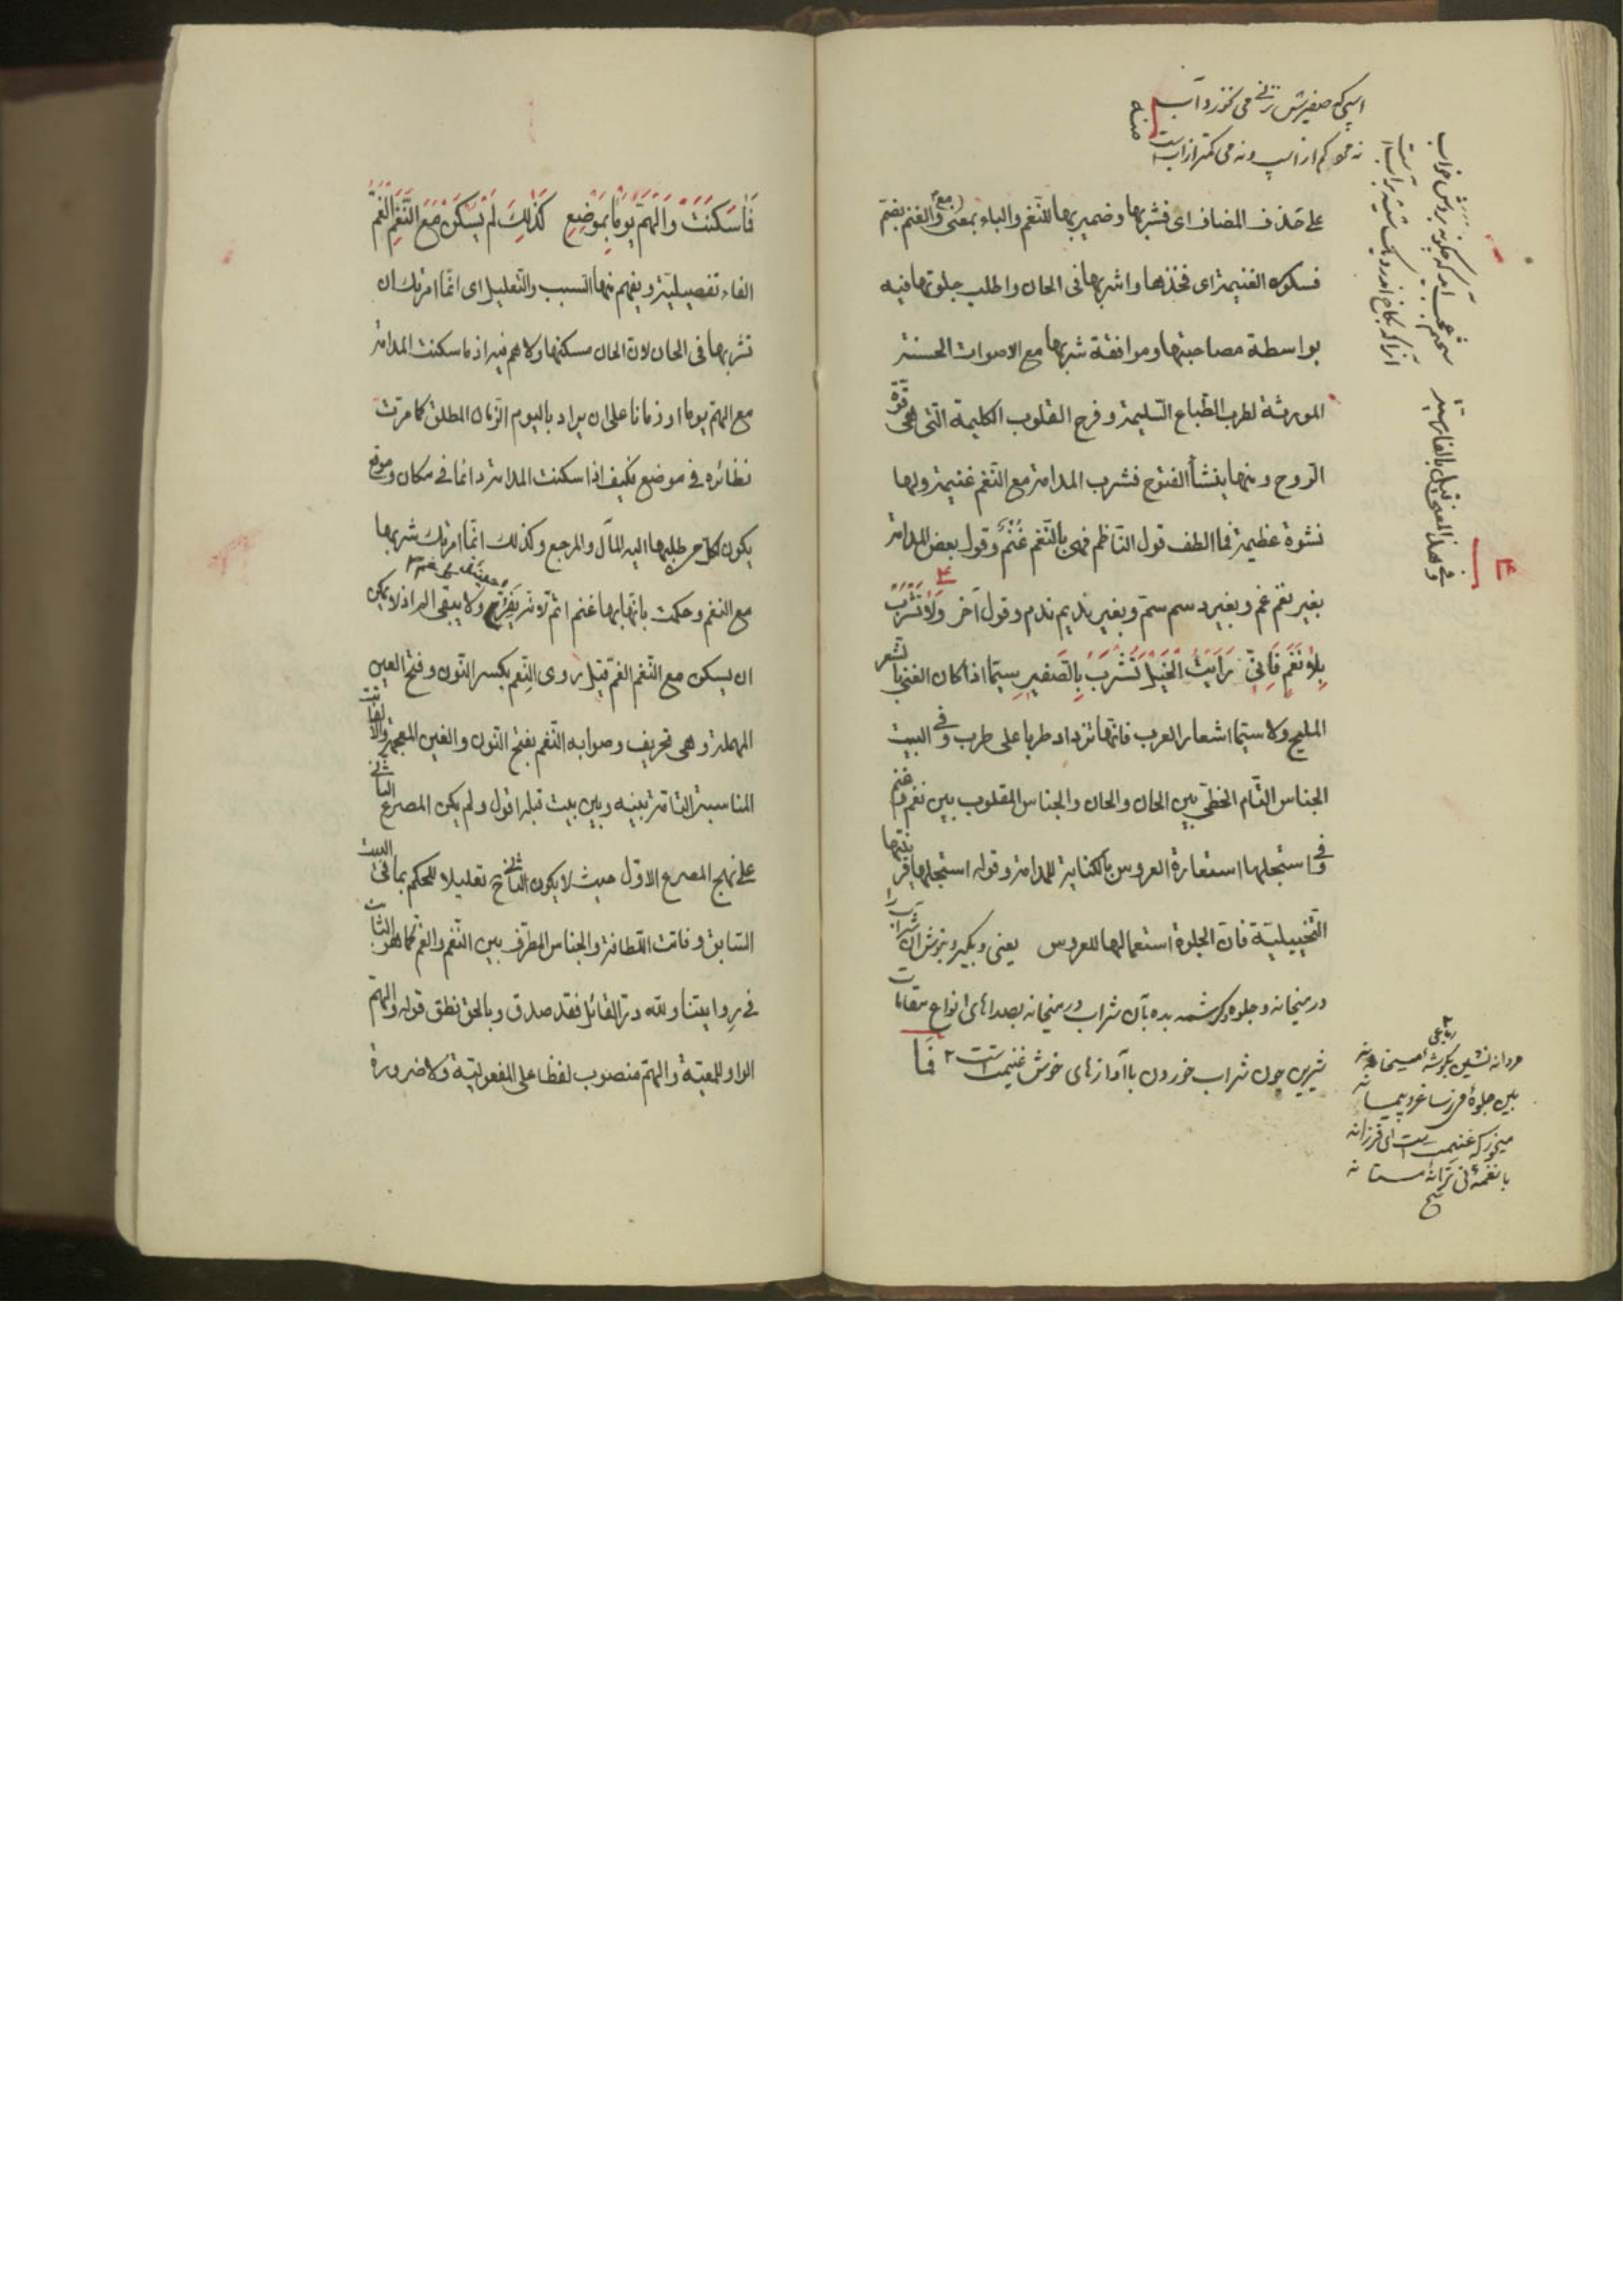 اسپی که صفیرش نزنی می نخورد آب
نه مرد کم از اسب و نه می کمتر از آب است
منه
على حذف المضاف اى فشربها وضمير بها للنّغم والباء بمعنى مع والغنم بضم
فسكون الغنيمة اى فخذها واشربها فى الحان واطلب جلوتها فيه
بواسطة مصاحبتها وموافقة شربها مع الاصوات الحسنة
المورثة لطرب الطّباع السّليمة وفرح القلوب الكليمة الّتى هى قوّة
الرّوح ومنها ينشأ الفتوح فشرب المدامة مع النّغم غنيمة ولها
نشوة عظيمة فما الطف قول النّاظم فهى بالنّغم غُنْم وقول بعض المدامة
بغير نغم غم وبغير دسم سمّ وبغير نديم ندم وقول آخر وَلَا تَشْرَبْ
بِلَا نَغَمٍ فَاِنّى رَاَيْتُ الْخَيْلَ تَشْرَبُ بِالصَّفِيرِ سيّما اذا كان الغنى بالشعر
المليح ولا سيّما اشعار العرب فانّها تزداد طربا على طرب وفى البيت
الجناس التّام الخطّى بين الحان والحان والجناس المقلوب بين نغم وغنم
وفى استجلها استعارة العروس بالكناية للمدامة وقوله استجلها قرينتها
التّخييليّة فانّ الجلوة استعمالها للعروس يعنى وبگير وبنوش آن شراب را
در ميخانه وجلوه وكرشمه بده بآن شراب در ميخانه بصداهاى انواع مقامات
شيرين چون شراب خوردن با آوازهاى خوش غنيمت است ٢ فَمَا
وفى هذا المعنى قيل بالفارسية
رباعى
مردانه نشين بگوشه ميخانه
بين جلوۀ مى ز ساغر و پيمانه
ميخور كه غنيمت است اى فرزانه
با نغمۀ نى ترانۀ مستانه
فَمَا سَكَنَتْ وَالْهَمَّ يَوْمًا بِمَوْضِعٍ كَذٰلِكَ لَمْ يَسْكُنْ مَعَ النَّغَمِ الْغَمُّ
الفاء تفصيليّة ويفهم منها السبب والتّعليل اى انّما امرتك ان
تشربها فى الحان لانّ الحان مسكنها ولا هم فيه اذ ما سكنت المدامة
مع الهمّ يوما او زمانا على ان يراد باليوم الزّمان المطلق كما مرّت
نظائره فى موضع فكيف اذا سكنت المدامة دائما فى مكان وموقع
يكون لكلّ من طلبها اليه المآل والمرجع وكذلك انّما امرتك شربها
مع النغم وحكمت بانّها بها غنم ولا يبقى الهمّ اذ لا يمكن
ان يسكن مع النّغم الغمّ قيل روى النّعم بكسر النّون وفتح العين
المهملة وهى تحريف وصوابه النّغم بفتح النّون والغين المعجمة والّا لفاتت
المناسبة التامّة بينه وبين بيت قبله اقول ولم يكن المصرع الثانى
على نهج المصرع الاوّل حيث لا يكون الثانى ح تعليلا للحكم بما فى البيت
السّابق وفاتت اللّطافة والجناس المطرّف بين النّغم والغم كما هو الثابت
فى روايتنا وللّه درّ القائل فقد صدق وبالحق نطق قوله والهمّ
الواو للمعيّة والهمّ منصوب لفظا على المفعوليّة ولا ضرورة